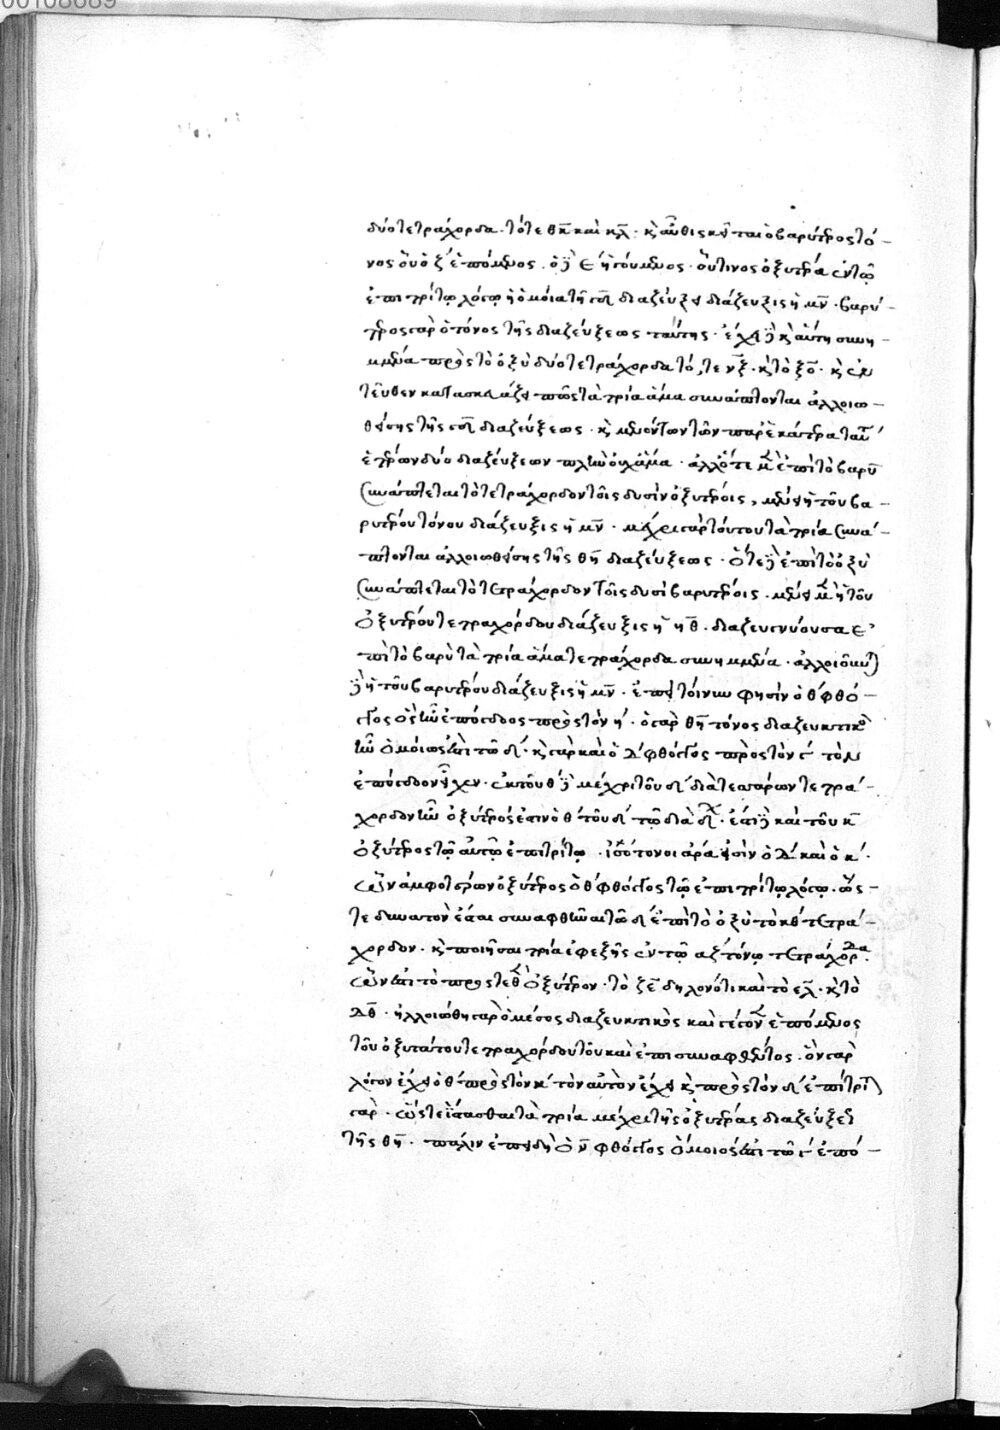 00108689
δύο τετράχορδα · τό τε θκ καὶ κλ · κ αὖθις κεῖται ὁ βαρύτερος τό-
νος οὗ ὁ ζ ἑπόμενος · ὁ δὲ ε ἡγούμενος · οὗτινος ὀξυτέρα ἐν τῶ
ἐπιτρίτω λόγω ἡ ὁμοία τῆ διαζεύξει διάζευξις ἡ μν · βαρύ-
τερος γὰρ ὁ τόνος τῆς διαζεύξεως ταύτης · ἔχει δὲ κ αὕτη συνη-
μμένα πρὸς τὸ ὀξὺ δύο τετράχορδα τό, τε νξ · κ τὸ ξο · κ ἐν
τεῦθεν κατασκευάζει πῶς τὰ τρία ἅμα συνάπτονται ἀλλοιω-
θείσης τῆς διαζεύξεως · κ μενόντων τῶν παρ' ἑκάτερα τα
ἑτέρων δύο διαζεύξεων πλὴν οὐχ ἅμα · ἀλλ' ὅτε μὲν ἐπὶ τὸ βαρὺ
συνάπτεται τὸ τετράχορδον τοῖς δυσὶν ὀξυτέροις, μένει ἡ τοῦ βα-
ρυτέρου τόνου διάζευξις ἡ μν · μέχρι γὰρ τούτου τὰ τρία συνά-
πτονται ἀλλοιωθείσης τῆς θη διαζεύξεως · ὅτε δὲ ἐπὶ τὸ ὀξὺ
συνάπτεται τὸ τετράχορδον τοῖς δυσὶ βαρυτέροις · μένει μὲν ἡ τοῦ
ὀξυτέρου τετραχόρδου διάζευξις ἡ ηθ · διαζευγνύουσα ἐ-
πὶ τὸ βαρὺ τὰ τρία ἅμα τετράχορδα συνημμένα · ἀλλοιοῦται
δὲ ἡ τοῦ βαρυτέρου διάζευξις ἡ μν · ἐπεὶ τοίνυν φησὶν ὁ θ φθό-
γγος ὃς ἦν ἐπόγδοος πρὸς τὸν η · ὁ γὰρ θη τόνος διαζευκτικὸς
ἦν ὁμοίως ἐπὶ τῶ δ · κ γὰρ καὶ ὁ δ φθόγγος πρὸς τὸν γ τὸν
ἐπόγδοον εἶχεν · ἐκ τοῦ θ δὲ μέχρι τοῦ δ διὰ τεσσάρων τετρά-
χορδον ἦν ὀξύτερός ἐστιν ὁ θ τοῦ δ τῶ διὰ δ · ἔστι δὲ καὶ τοῦ κ
ὀξύτερος τῶ αὐτῶ ἐπιτρίτω · ἰσότονοι ἄρα εἰσὶν ὁ δ καὶ ὁ κ ·
ὧν ἀμφοτέρων ὀξύτερος ὁ θ φθόγγος τῶ ἐπιτρίτω λόγω · ὥς-
τε δυνατὸν ἔσται συναφθῆναι τῶ δ ἐπὶ τὸ ὀξὺ τὸ κθ τετρά-
χορδον · κ ποιῆσαι τρία ἐφεξῆς ἐν τῶ αζ τόνω τετράχορδα
ὧν ἐπὶ τὸ προστεθὲν ὀξύτερον · τὸ ζε δηλονότι καὶ τὸ ελ · κ τὸ
δθ · ἠλλοιώθη γὰρ ὁ μέσος διαζευκτικὸς καὶ γέγονεν ἑπόμενος
τοῦ ὀξυτάτου τετραχόρδου τοῦ καὶ ἐπισυναφθέντος · ὃν γὰρ
λόγον ἔχει ὁ θ πρὸς τὸν κ τὸν αὐτὸν ἔχει κ πρὸς τὸν δ ἐπίτριτον
γάρ · ὥστε ἵστασθαι τὰ τρία μέχρι τῆς ὀξυτέρας διαζεύξεως
τῆς θη · πάλιν ἐπειδὴ ὁ ν φθόγγος ὁμοίος ἐπὶ τῶ γ ἐπό-